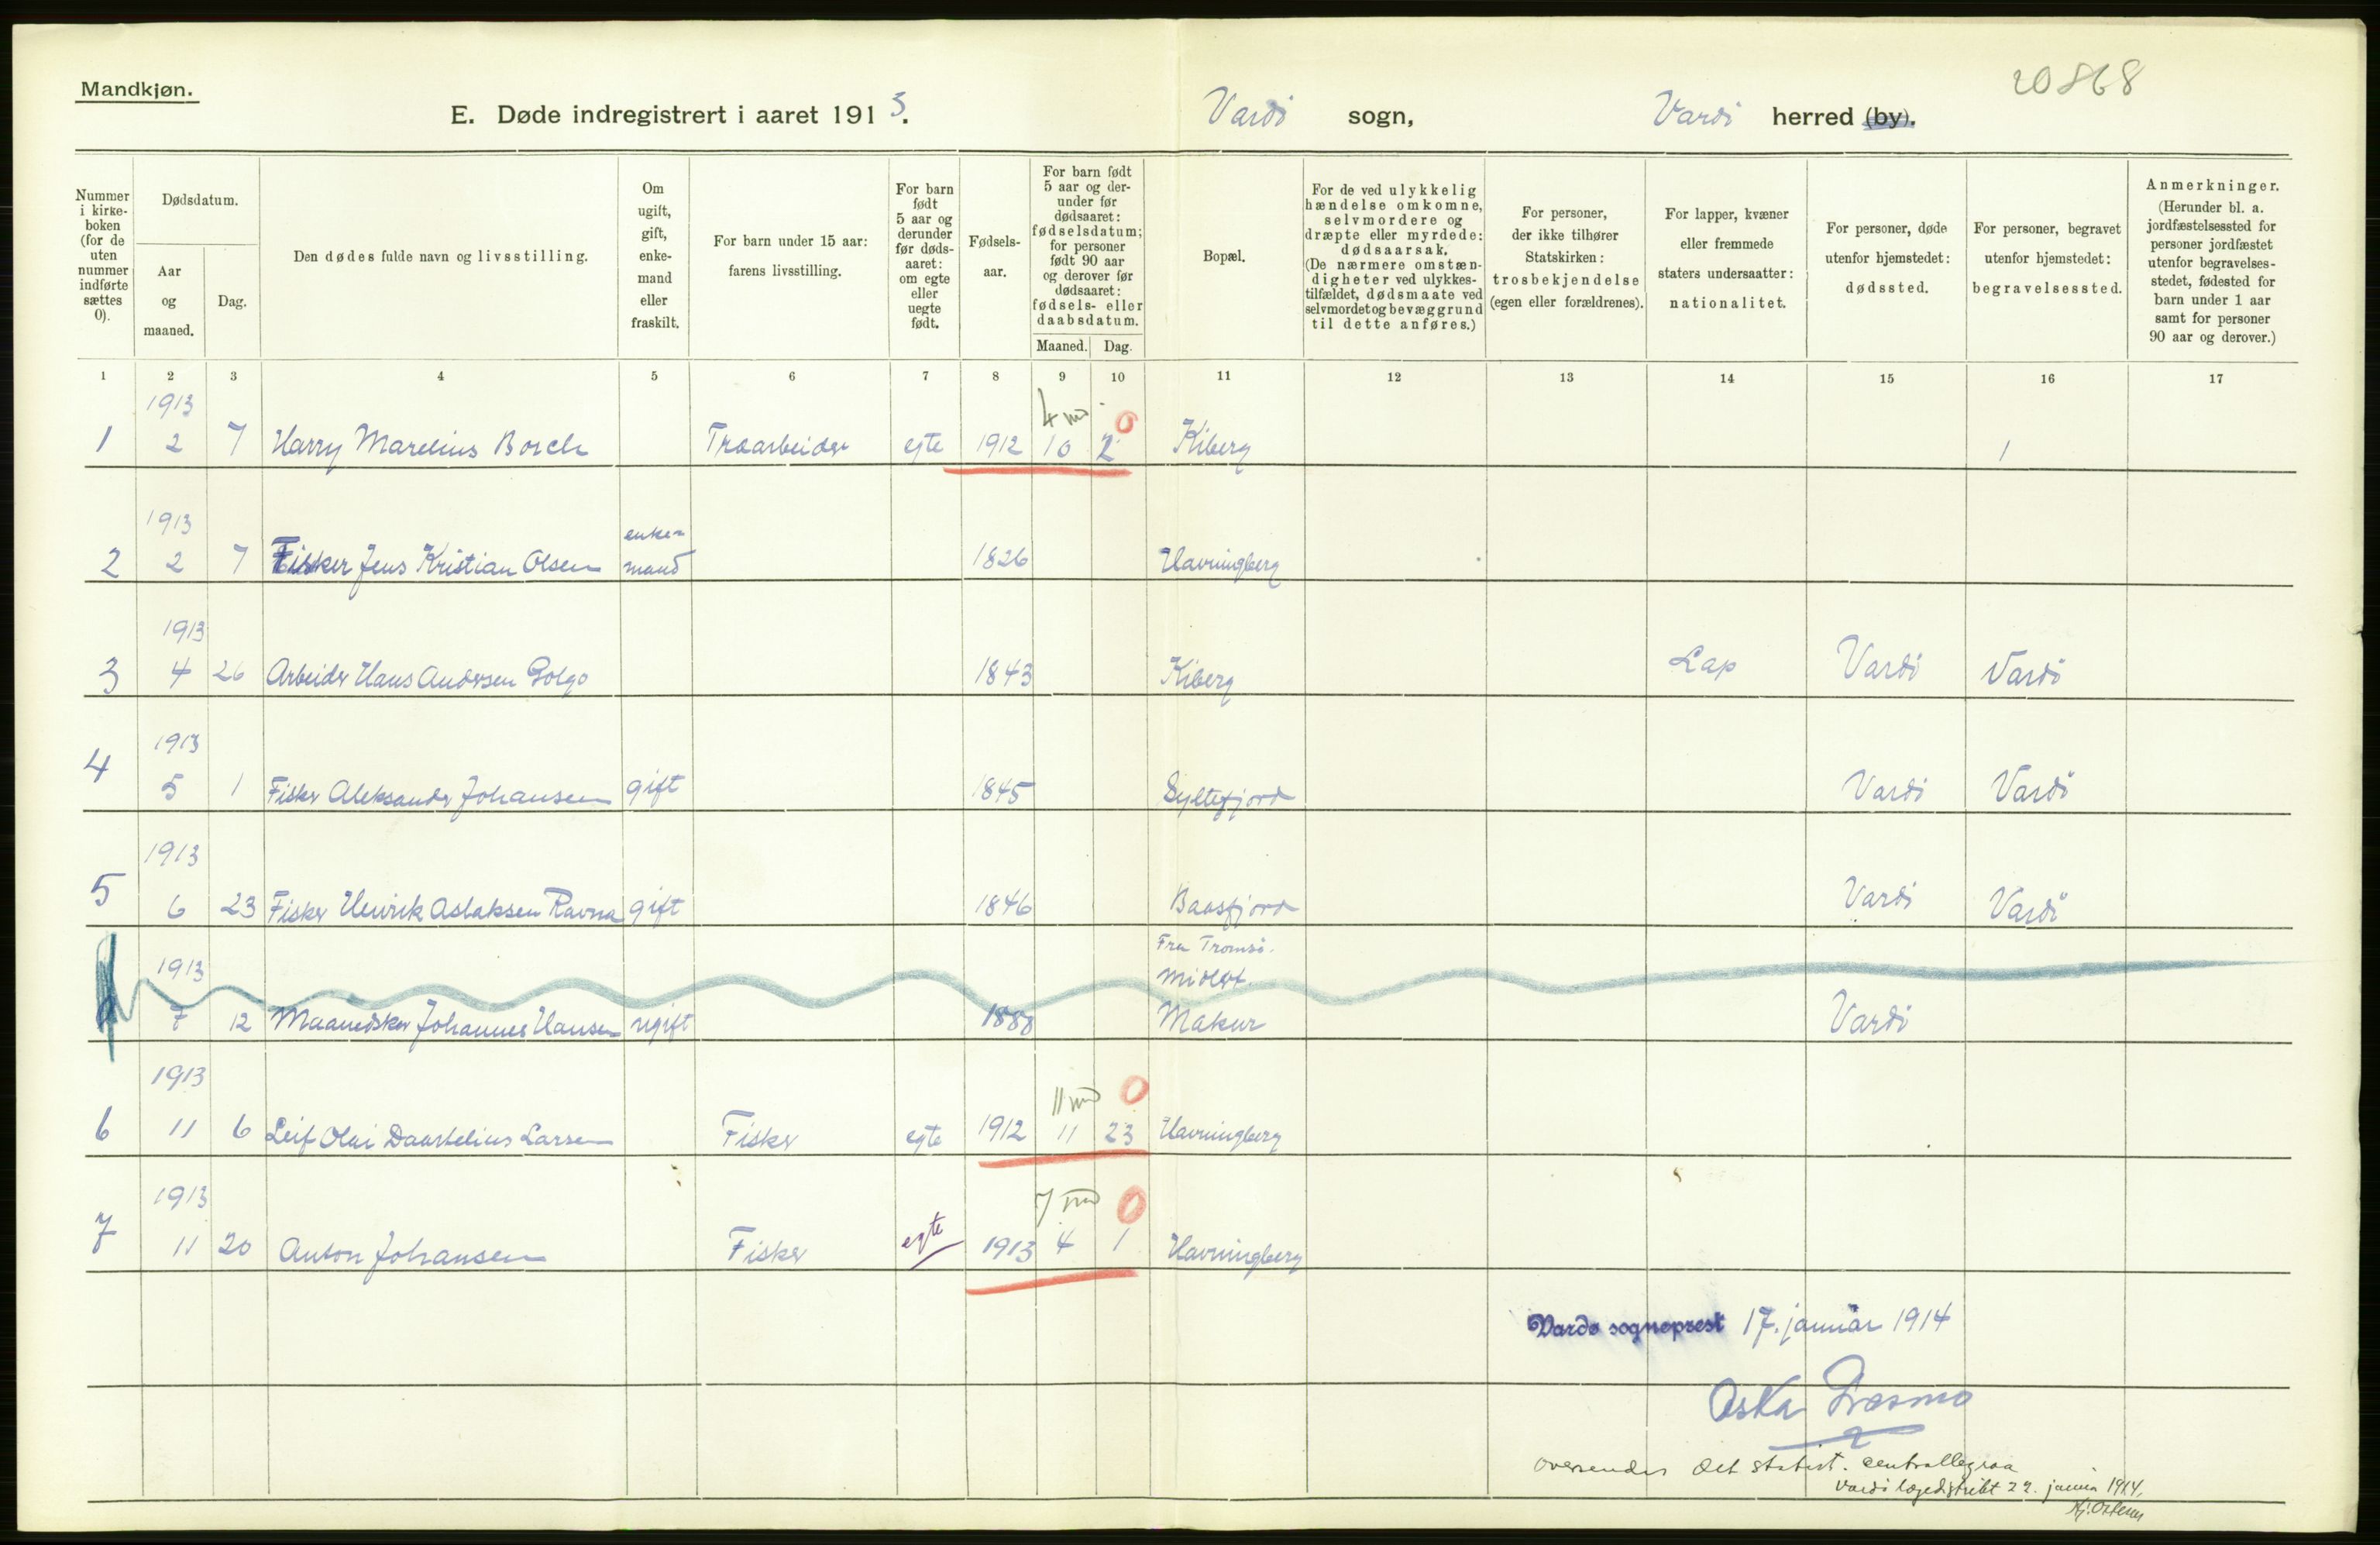 20868
Mandkjøn.
E. Døde indregistrert i aaret 1913. Vardö sogn, Vardö herred (by).
Nummer i kirke-boken (for de uten nummer indførte sættes 0).
Dødsdatum.
Aar og maaned.
Dag.
Den dødes fulde navn og livsstilling.
Om ugift, gift, enke-mand eller fraskilt.
For barn under 15 aar: farens livsstilling.
For barn født 5 aar og derunder før døds-aaret: om egte eller uegte født.
Fødsels-aar.
For barn født 5 aar og der-under før dødsaaret: fødselsdatum; for personer født 90 aar og derover før dødsaaret: fødsels- eller daabsdatum.
Maaned. Dag.
Bopæl.
For de ved ulykkelig hændelse omkomne, selvmordere og dræpte eller myrdede: dødsaarsak. (De nærmere omstæn-digheter ved ulykkes-tilfældet, dødsmaate ved selvmordet og bevæggrund til dette anføres.)
For personer, der ikke tilhører Statskirken: trosbekjendelse (egen eller forældrenes).
For lapper, kvæner eller fremmede staters undersaatter: nationalitet.
For personer, døde utenfor hjemstedet: dødssted.
For personer, begravet utenfor hjemstedet: begravelsessted.
Anmerkninger. (Herunder bl. a. jordfæstelsessted for personer jordfæstet utenfor begravelses-stedet, fødested for barn under 1 aar samt for personer 90 aar og derover.)
1 2 3 4 5 6 7 8 9 10 11 12 13 14 15 16 17
1913 4 md 0
1 2 7 Harry Marelius Borch Træarbeider egte 1912 10 2 Kiberg 1
1913 enke-
2 2 7 Fisker Jens Kristian Olsen mand 1826 Havningberg
1913
3 4 26 Arbeider Hans Andersen Golgo 1843 Kiberg Lap Vardö Vardö
1913
4 5 1 Fisker Aleksander Johansen gift 1845 Syltefjord Vardö Vardö
1913
5 6 23 Fisker Henrik Aslaksen Ravna gift 1846 Baasfjord Vardö Vardö
Fra Tromsö.
1913 Midlert.
7 12 Maanedsker Johannes Hansen ugift 1888 Makur Vardö
1913 11 md 0
6 11 6 Leif Olai Daartelius Larsen Fisker egte 1912 11 23 Havningberg
1913 7 md 0
7 11 20 Anton Johansen Fisker egte 1913 4 1 Havningberg
Vardø sogneprest 17. januar 1914
oversendes det statist. centralbyraa
Vardö lægedistrikt 22. januar 1914,